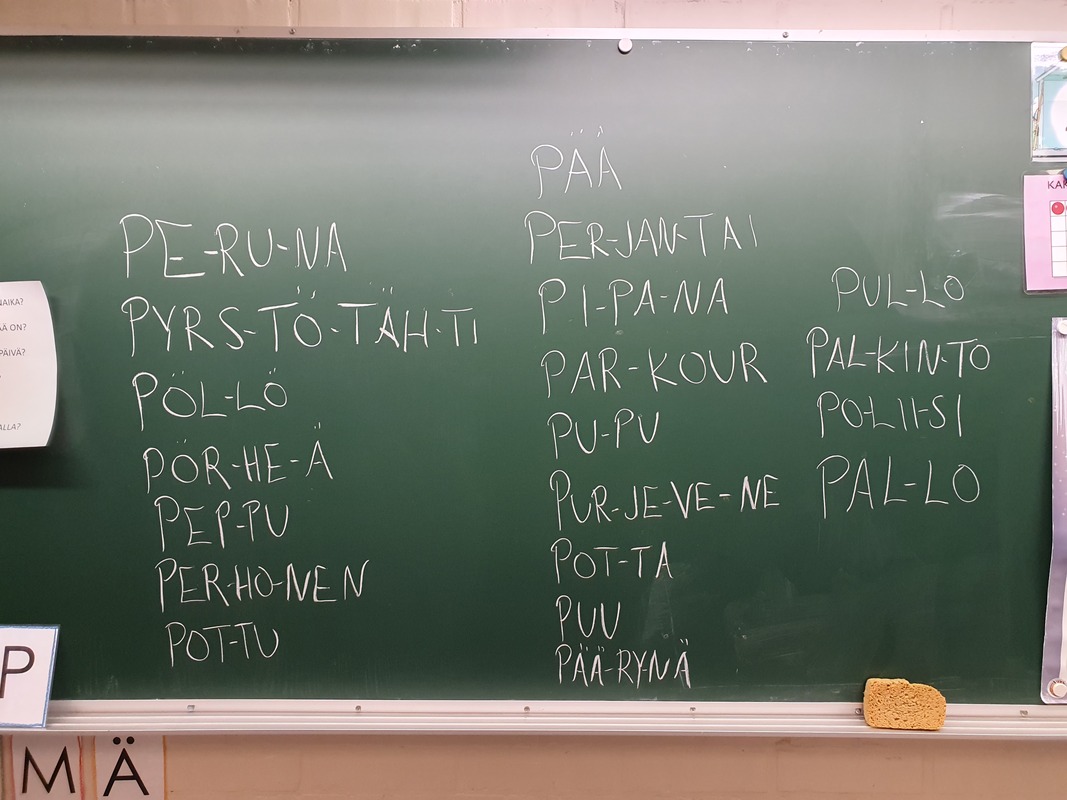 PE-RU-NA
PYRS-TÖ-TÄH-TI
PÖL-LÖ
PÖR-HE-Ä
PEP-PU
PER-HO-NEN
POT-TU
PÄÄ
PER-JAN-TAI
PI-PA-NA
PAR-KOUR
PU-PU
PUR-JE-VE-NE
POT-TA
PUU
PÄÄ-RY-NÄ
PUL-LO
PAL-KIN-TO
PO-LII-SI
PAL-LO
NAIKA?
ÄÄ ON?
PÄIVÄ?
ALLA?
P
M Ä